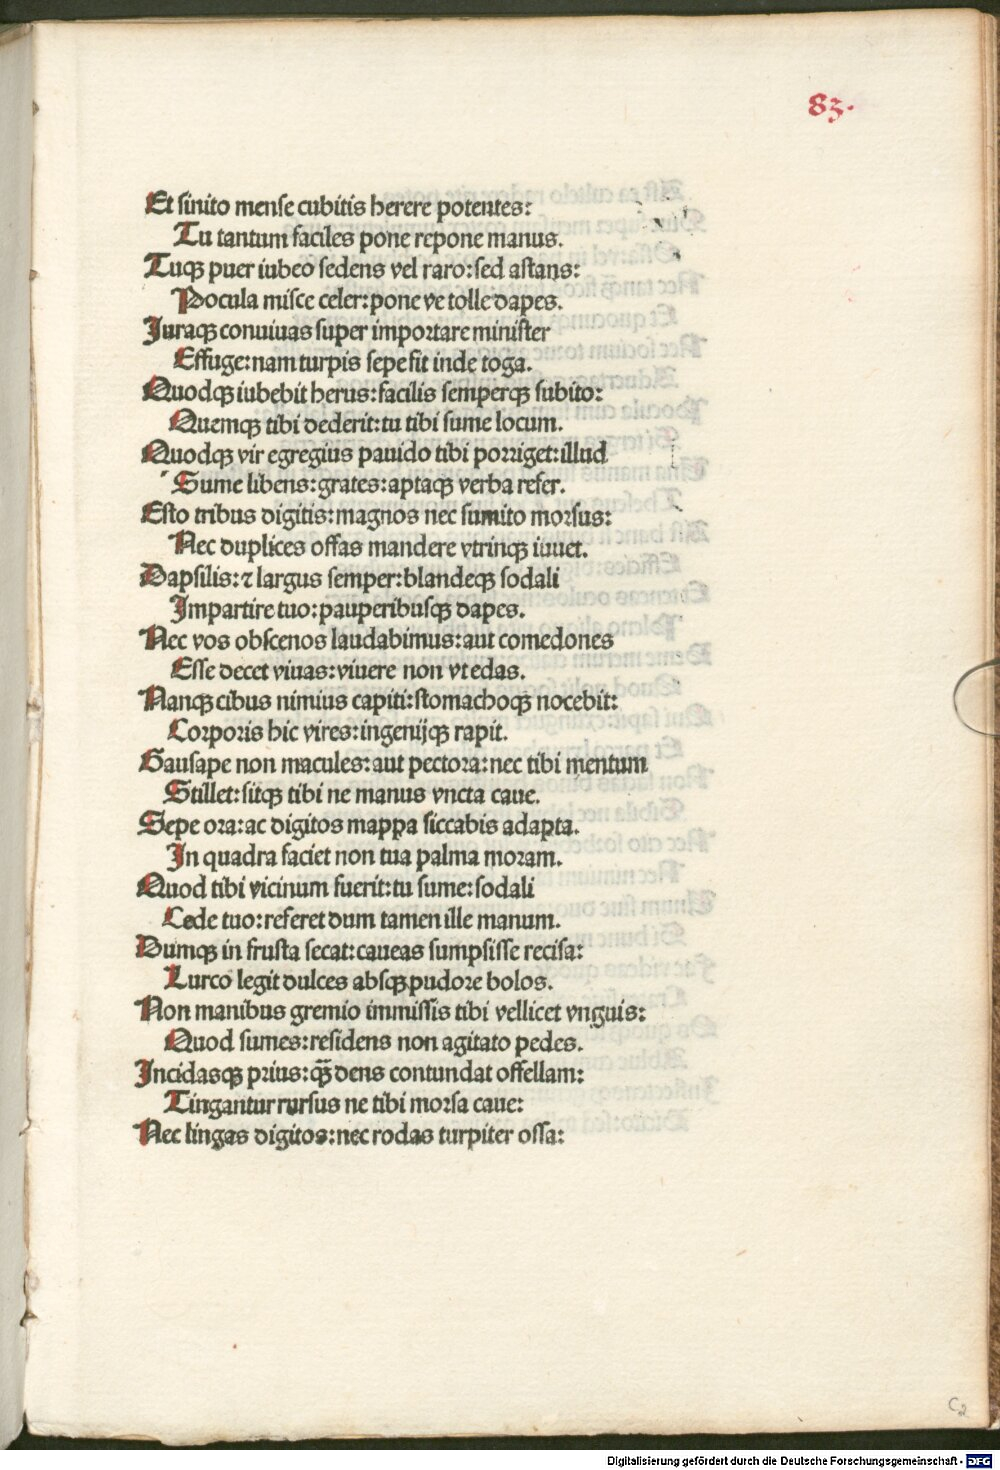 83.
Et sinito mense cubitis herere potentes:
Tu tantum faciles pone repone manus.
Tuqꝫ puer iubeo sedens vel raro: sed astans:
Pocula misce celer: pone ve tolle dapes.
Juraqꝫ conuiuas super importare minister
Effuge: nam turpis sepe fit inde toga.
Quodqꝫ iubebit herus: facilis semperqꝫ subito:
Quemqꝫ tibi dederit: tu tibi sume locum.
Quodqꝫ vir egregius pauido tibi porriget: illud
Sume libens: grates: aptaqꝫ verba refer.
Esto tribus digitis: magnos nec sumito morsus:
Nec duplices offas mandere vtrinqꝫ iuuet.
Dapsilis: ⁊ largus semper: blandeqꝫ sodali
Impartire tuo: pauperibusqꝫ dapes.
Nec vos obscenos laudabimus: aut comedones
Esse decet viuas: viuere non vt edas.
Nanqꝫ cibus nimius capiti: stomachoqꝫ nocebit:
Corporis hic vires: ingenijqꝫ rapit.
Gausape non macules: aut pectora: nec tibi mentum
Stillet: sitqꝫ tibi ne manus vncta caue.
Sepe ora: ac digitos mappa siccabis adapta.
In quadra faciet non tua palma moram.
Quod tibi vicinum fuerit: tu sume: sodali
Cede tuo: referet dum tamen ille manum.
Dumqꝫ in frusta secat: caueas sumpsisse recisa:
Lurco legit dulces absqꝫ pudore bolos.
Non manibus gremio immissis tibi vellicet vnguis:
Quod sumes: residens non agitato pedes.
Incidasqꝫ prius: qꝫ̃ dens contundat offellam:
Tingantur rursus ne tibi morsa caue:
Nec lingas digitos: nec rodas turpiter ossa:
C2
Digitalisierung gefördert durch die Deutsche Forschungsgemeinschaft - DFG